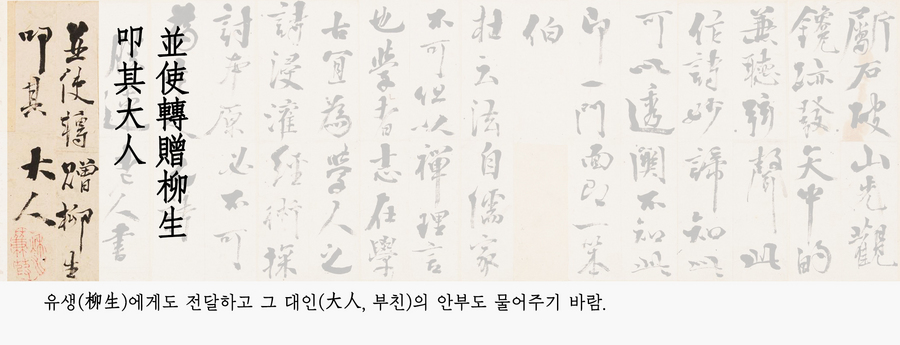 斲石破山先觀
鑱跡發矢中的
兼聽弦聲此
作詩妙諦知此
可以透關不知此
一門面即一
伯
杜云法自儒家
不可但以禪理言
也學者志在學
古宜為學人之
詩浸灌經術探
討本原必不可
並使轉贈柳生
叩其大人
人書
並使轉贈柳生
叩其大人
유생(柳生)에게도 전달하고 그 대인(大人, 부친)의 안부도 물어주기 바람.